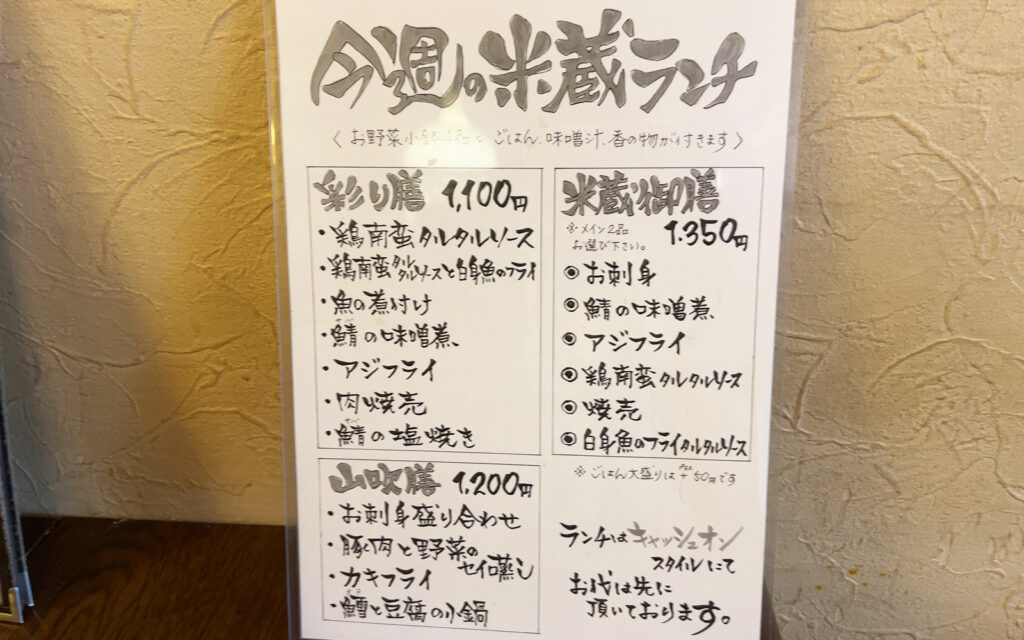 今週の米蔵ランチ
〈お野菜小鉢4品とごはん、味噌汁、香の物が付きます〉
彩り膳 1,100円
・鶏南蛮タルタルソース
・鶏南蛮タルタルソースと白身魚のフライ
・魚の煮付け
・鯖の味噌煮
・アジフライ
・肉焼売
・鯖の塩焼き
山吹膳 1,200円
・お刺身盛り合わせ
・豚肉と野菜の
セイロ蒸し
・カキフライ
・鱈と豆腐の小鍋
米蔵御膳
※メイン2品
お選び下さい。
1,350円
◉お刺身
◉鯖の味噌煮
◉アジフライ
◉鶏南蛮タルタルソース
◉焼売
◉白身魚のフライタルタルソース
※ごはん大盛りは+50円です
ランチはキャッシュオン
スタイルにて
お代は先に
頂いております。